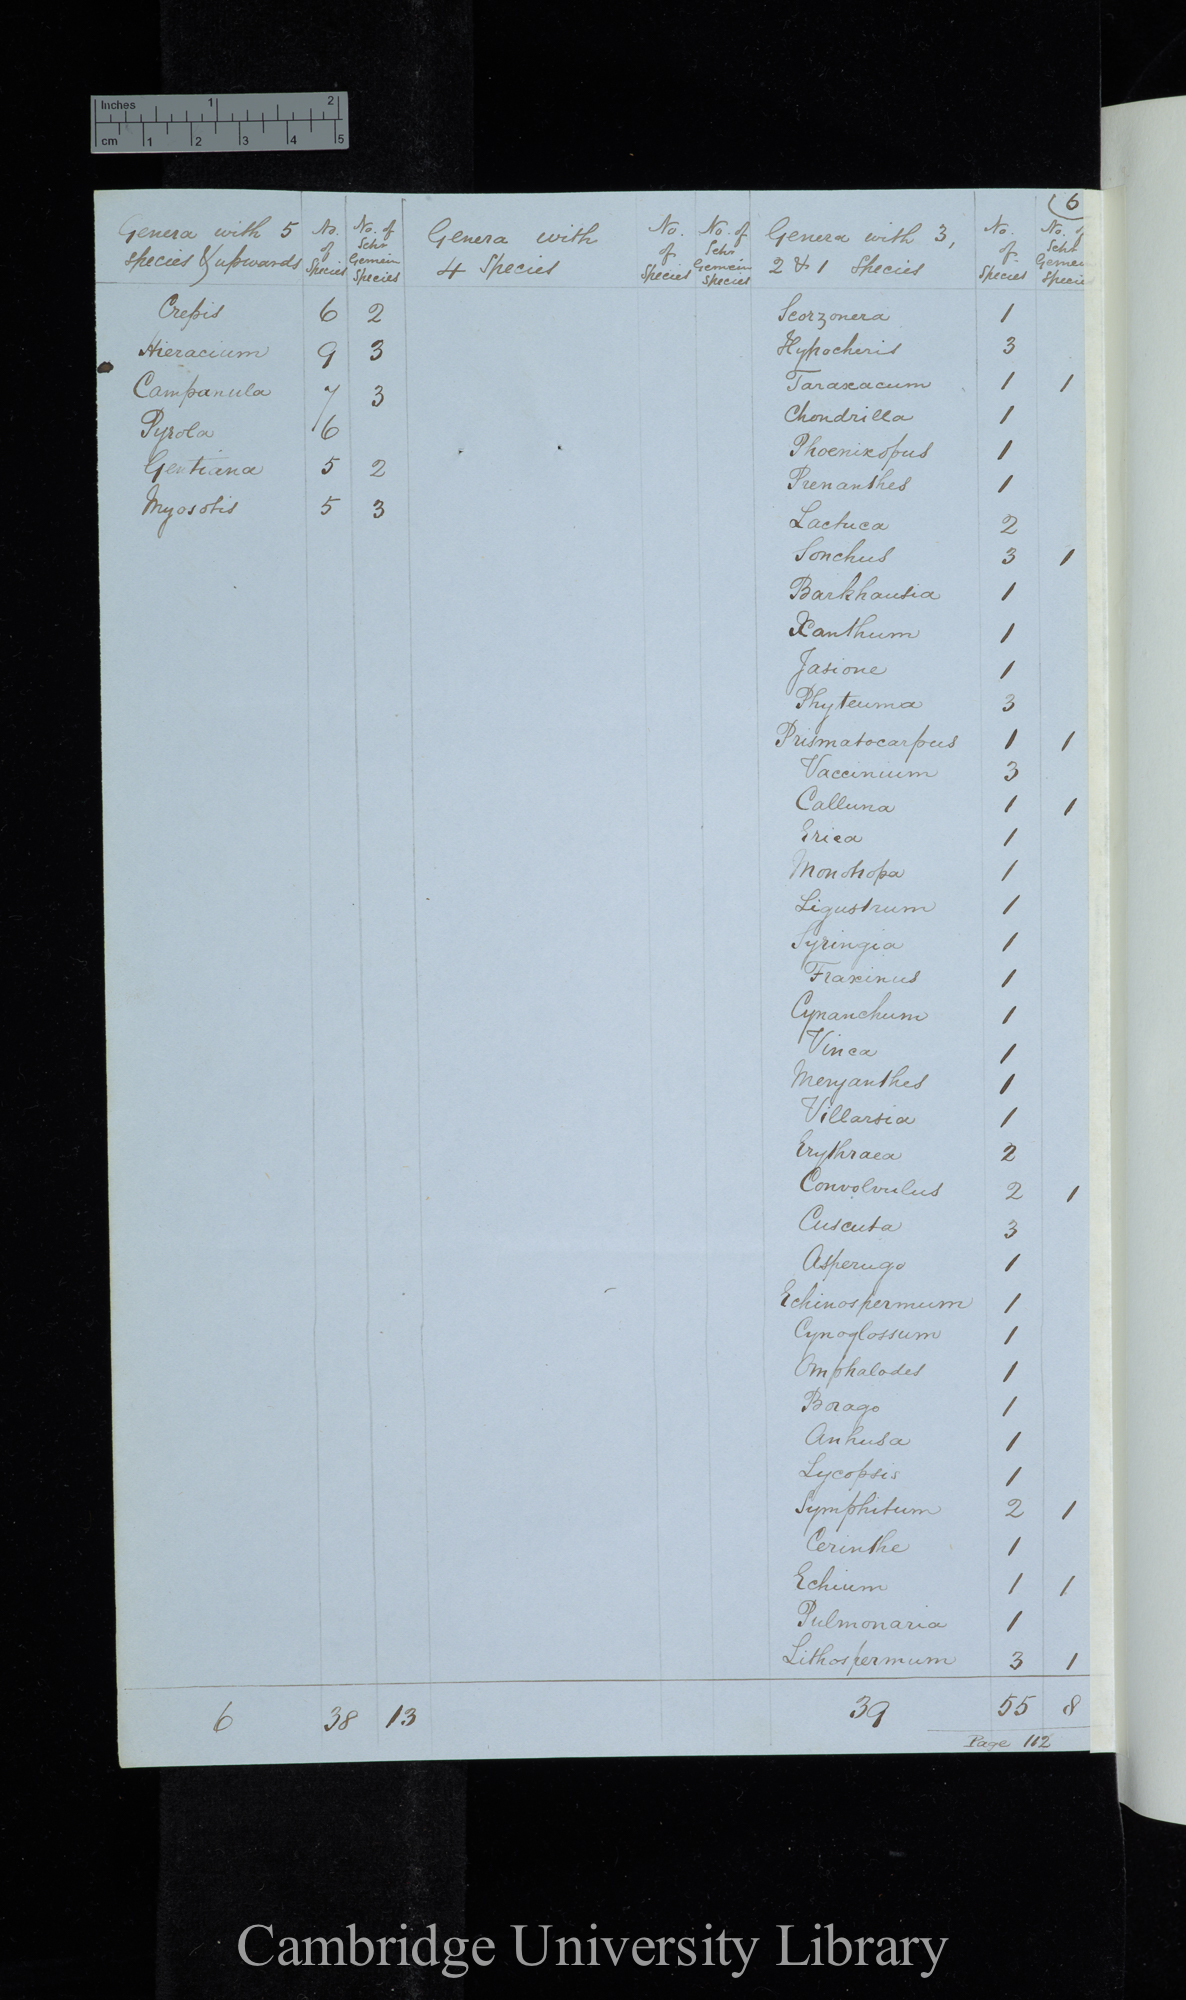 Inches 1 2
cm 1 2 3 4 5
6
Genera with 5 species & upwards | No. of Species | No. of Sehr Gemein Species | Genera with 4 Species | No. of Species | No. of Sehr Gemein Species | Genera with 3, 2 & 1 Species | No. of Species | No. of Sehr Gemein Species
Crepis 6 2
Hieracium 9 3
Campanula 7 3
Pyrola 6
Gentiana 5 2
Myosotis 5 3
6 38 13
Scorzonera 1
Hypocheris 3
Taraxacum 1 1
Chondrilla 1
Phoenixopus 1
Prenanthes 1
Lactuca 2
Sonchus 3 1
Barkhausia 1
Xanthum 1
Jasione 1
Phyteuma 3
Prismatocarpus 1 1
Vaccinium 3
Calluna 1 1
Erica 1
Monotropa 1
Ligustrum 1
Syringia 1
Fraxinus 1
Cynanchum 1
Vinca 1
Menyanthes 1
Villarsia 1
Erythraea 2
Convolvulus 2 1
Cuscuta 3
Asperugo 1
Echinospermum 1
Cynoglossum 1
Omphalodes 1
Borago 1
Anhusa 1
Lycopsis 1
Symphitum 2 1
Cerinthe 1
Echium 1 1
Pulmonaria 1
Lithospermum 3 1
39 55 8
Page 112
Cambridge University Library